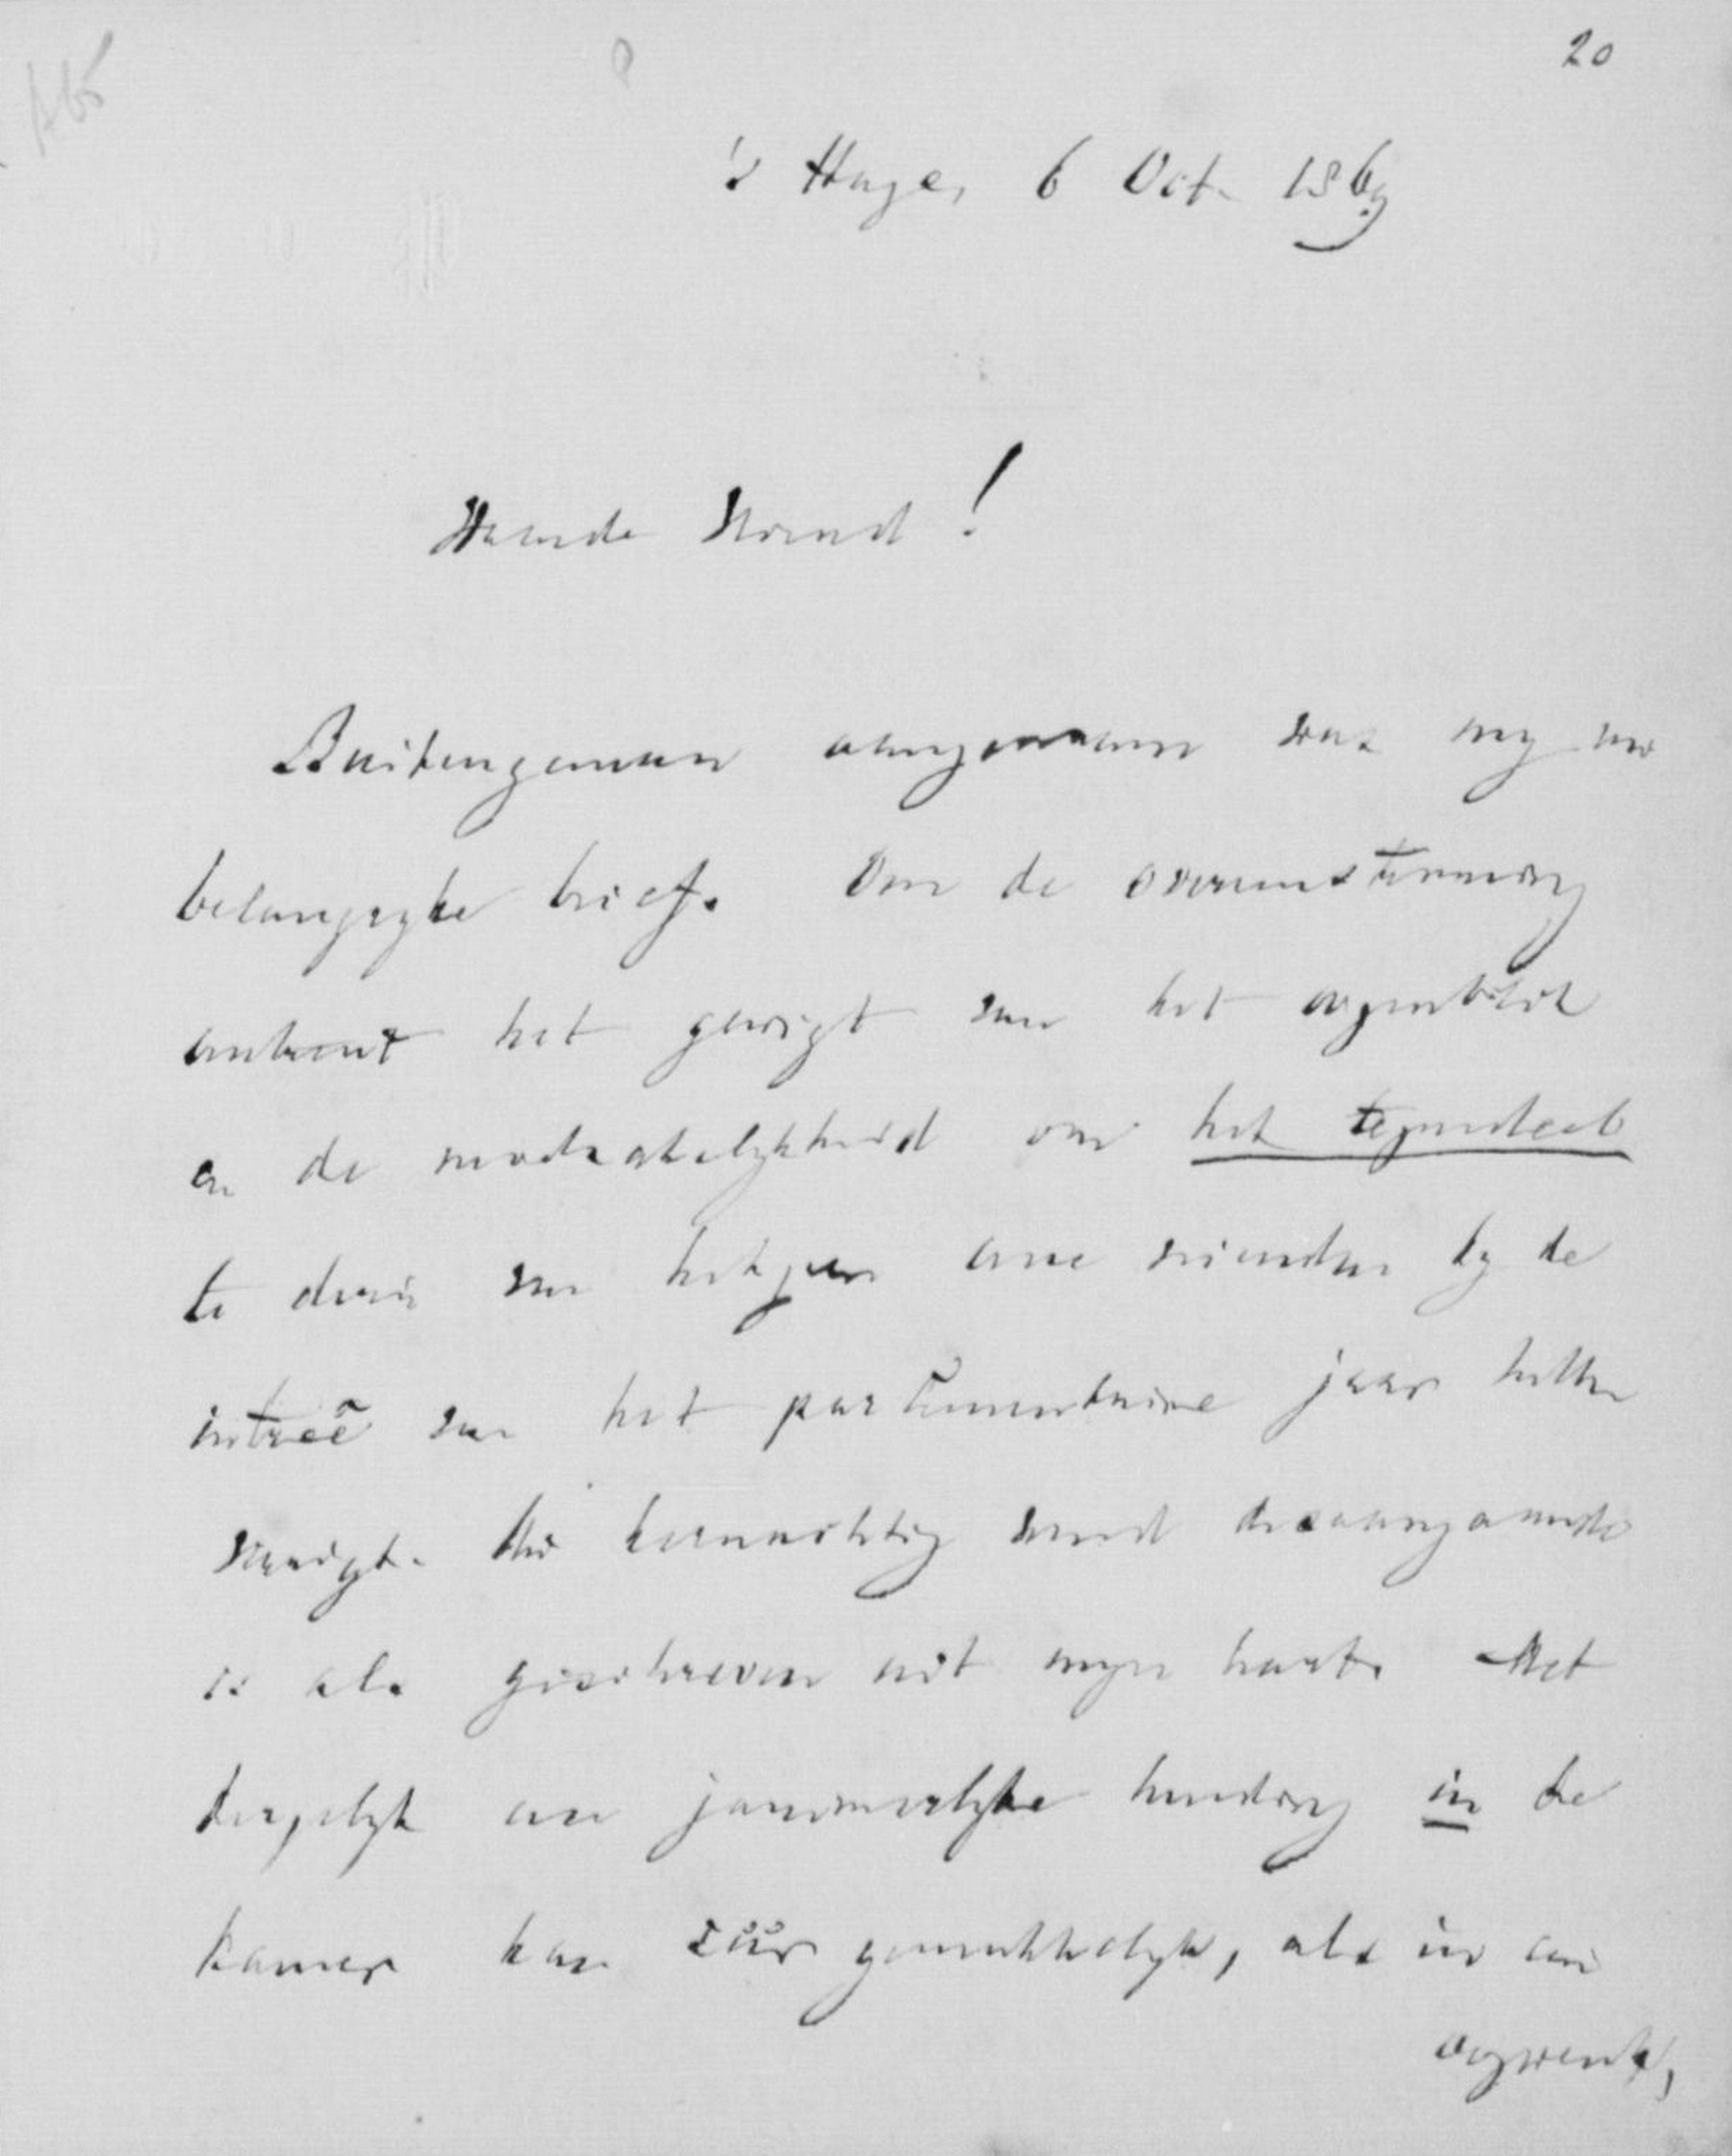 20
's Hage, 6 Oct. 1869
Waarde Vriend!
Buitengemeen aangenaam was mij uw
belangrijke brief. Om de overeenstemming
omtrent het gewigt van het oogenblik
en de noodzakelijkheid om het tegendeel
te doen van hetgeen onze vrienden bij de
intreê van het parlementaire jaar hebben
verrigt. Uw kernachtig woord dienaangaande
is als geschreven uit mijn hart. Met
dergelijk een jammerlijke houding in de
kamer kan zéér gemakkelijk, als in een
oogwenk,